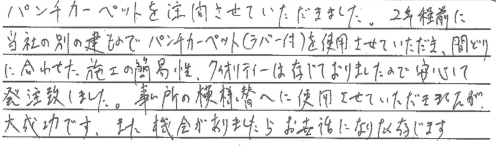 パンチカーペットを注文させていただきました。2年程前に
当社の別の建ものでパンチカーペット(ラバー付)を使用させていただき、間どり
に合わせた施工の簡易性、クオリティーは存じておりましたので安心して
発注致しました。事ム所の模様替へに使用させていただきましたが、
大成功です。また機会がありましたらお世話になりたく存じます